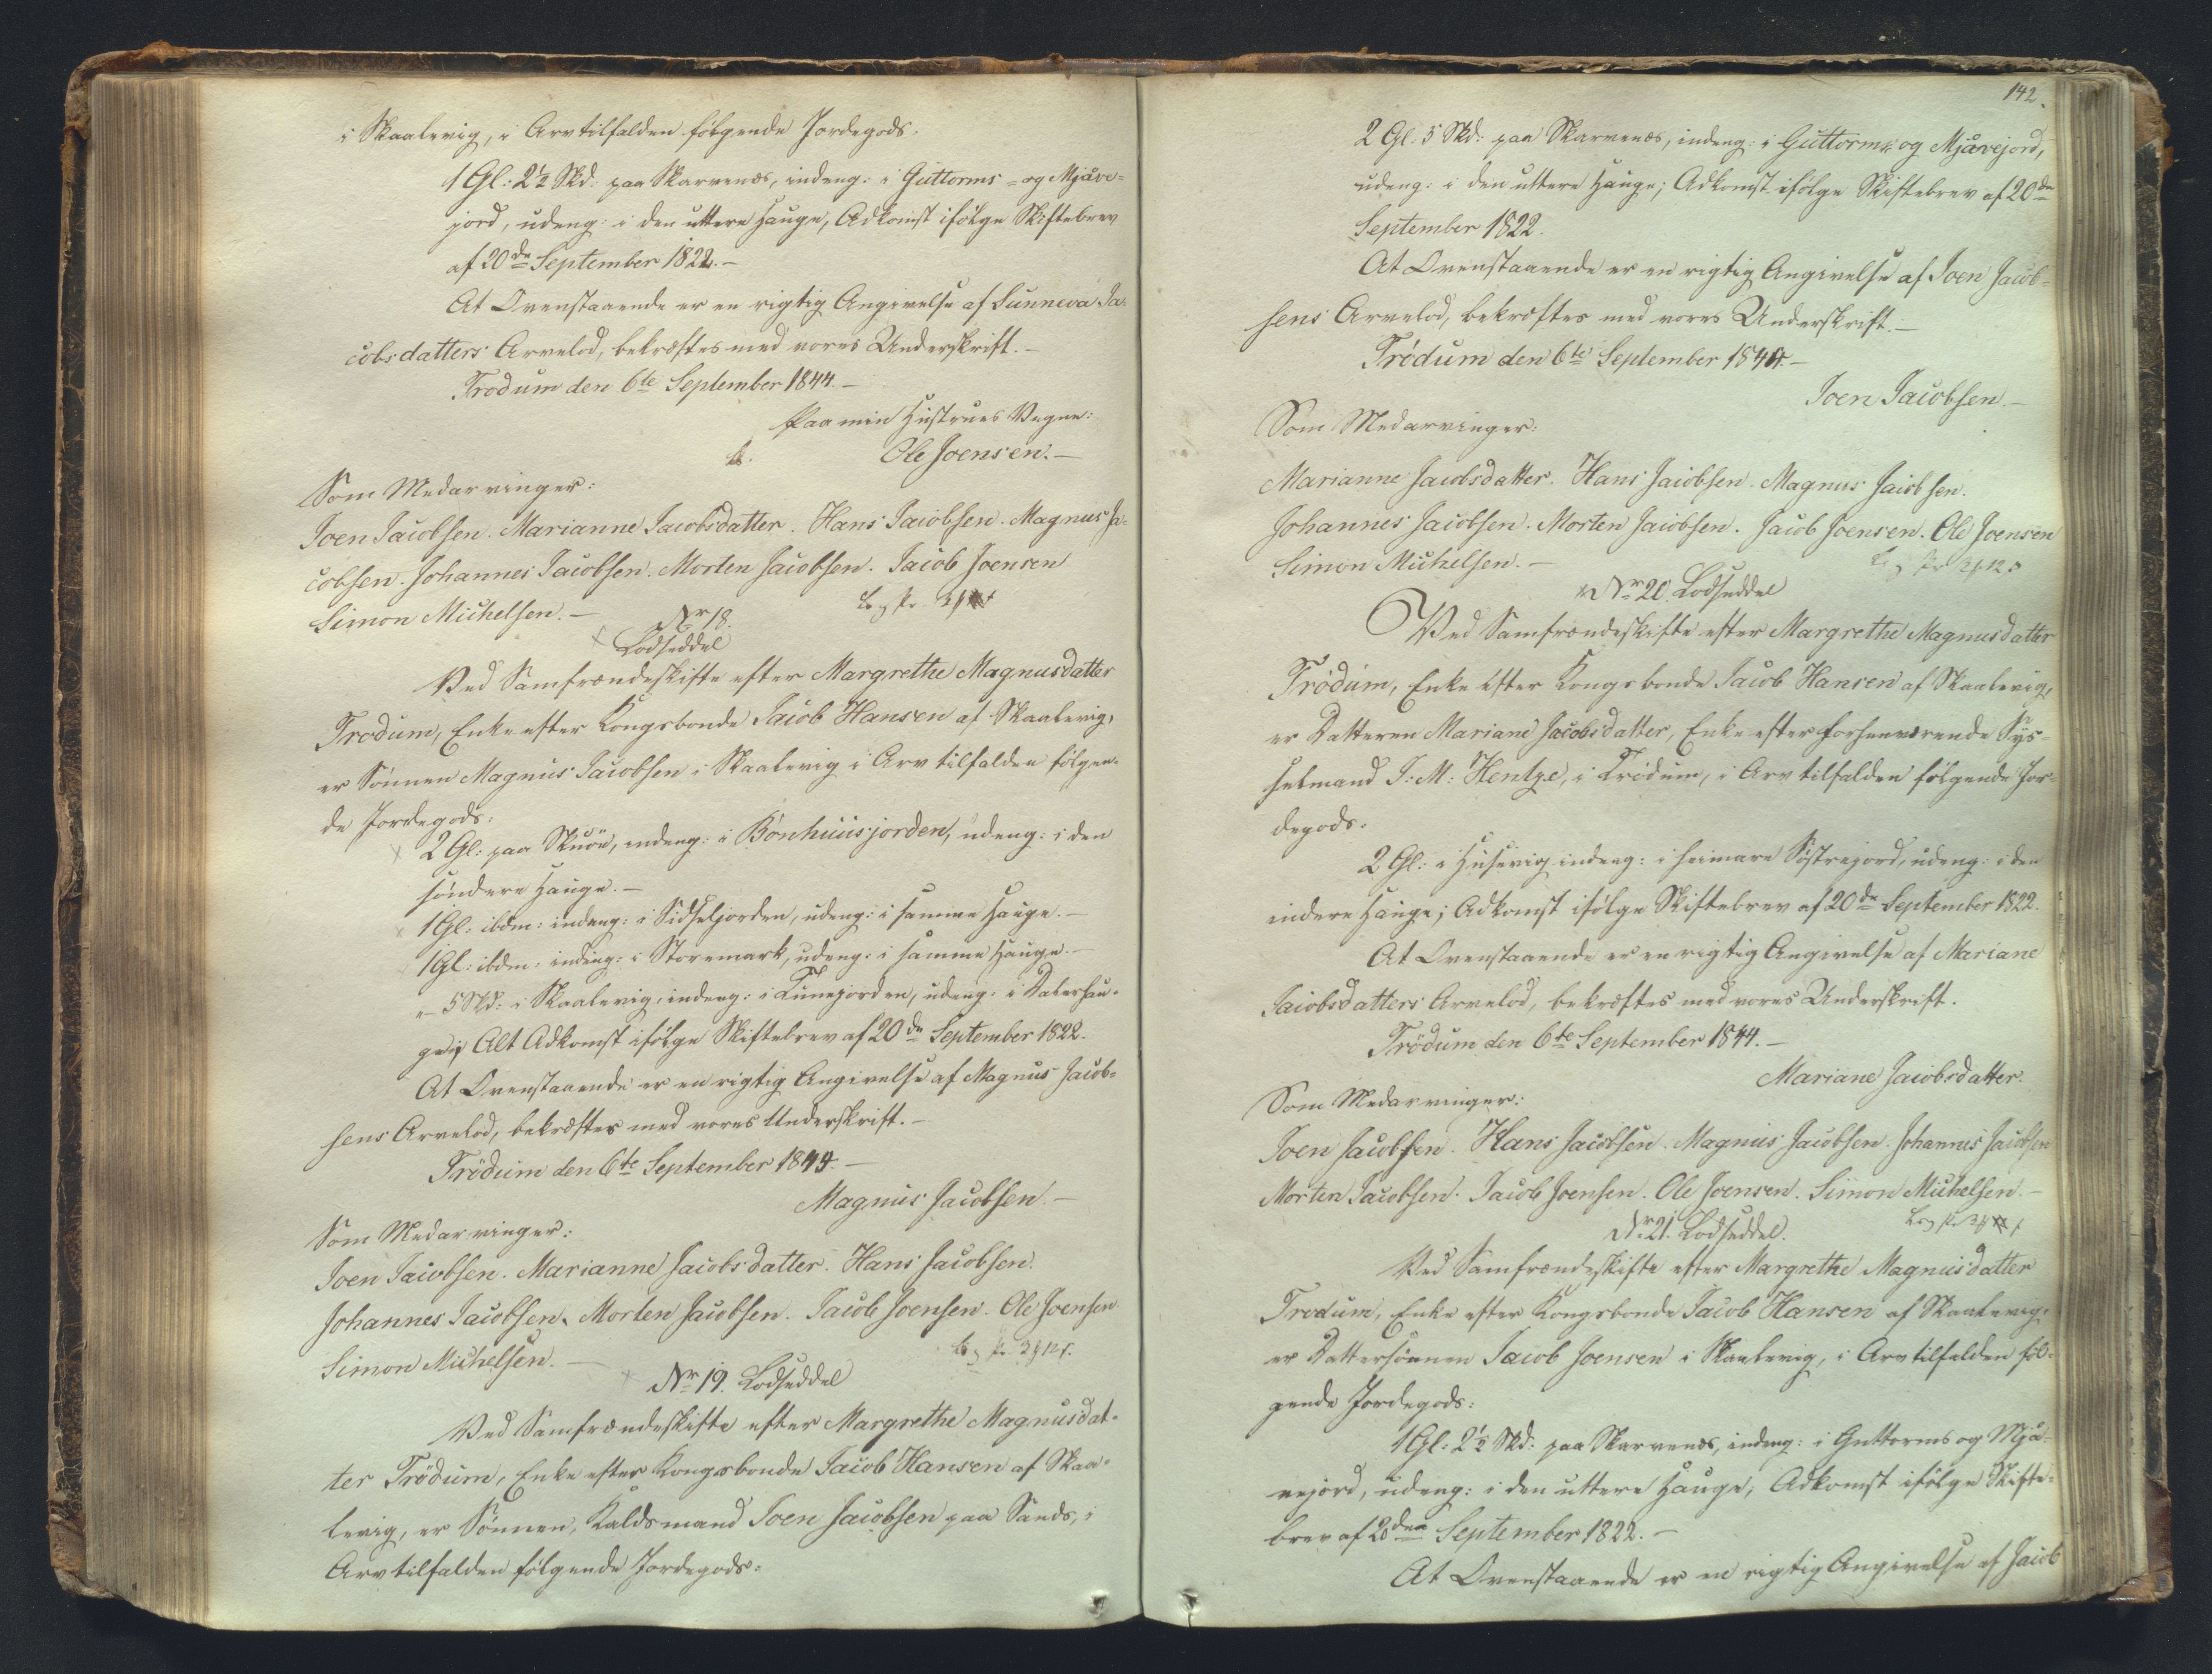 i Skaalevig, i Arv tilfalden følgende Jordegods:
1 Gl: 2½ Skd: paa Skarvenæs, indeng: i Guttorms- og Mjáve-
jord, udeng: i den uttere Hauge, Adkomst ifølge Skiftebrev
af 20de September 1822.-
At Ovenstaaende er en rigtig Angivelse af Sunneva Ja-
cobsdatters Arvelod, bekræftes med vores Underskrift.-
Trödum den 6te September 1844.-
Paa min Hustrues Vegne:
Ole Joensen.-
Som Medarvinger:
Joen Jacobsen. Marianne Jacobsdatter. Hans Jacobsen. Magnus Ja-
cobsen. Johannes Jacobsen. Morten Jacobsen. Jacob Joensen
Simon Michelsen.-
Nr 18.
Lodseddel
Ved Samfrændeskifte efter Margrethe Magnusdatter
Trödum, Enke efter Kongsbonde Jacob Hansen af Skaalevig,
er Sønnen Magnus Jacobsen i Skaalevig i Arv tilfalden følgen-
de Jordegods:
2 Gl: paa Skuöe, indeng: i Bönhuusjorden, udeng: i den
søndere Hauge.-
1 Gl: ibdm: indeng: i Sidseljorden, udeng: i samme Hauge.-
1 Gl: ibdm: indeng: i Storemark, udeng: i samme Hauge.-
"- 5 Skd: i Skaalevig, indeng: i Tunejorden, udeng: i Dalerhau-
ge; Alt Adkomst ifølge Skiftebrev af 20de September 1822.
At Ovenstaaende er en rigtig Angivelse af Magnus Jacob-
sens Arvelod, bekræftes med vores Underskrift.-
Trödum den 6te September 1844.-
Magnus Jacobsen.-
Som Medarvinger:
Joen Jacobsen. Marianne Jacobsdatter. Hans Jacobsen.
Johannes Jacobsen. Morten Jacobsen. Jacob Joensen. Ole Joensen.
Simon Michelsen.-
Nr 19. Lodseddel
Ved Samfrændeskifte efter Margrethe Magnusdat-
ter Trödum, Enke efter Kongsbonde Jacob Hansen af Skaa-
levig, er Sønnen, Kaldsmand Joen Jacobsen paa Sands, i
Arv tilfalden følgende Jordegods:
142.
2 Gl: 5 Skd: paa Skarvenæs, indeng: i Guttorms- og Mjávejord,
udeng: i den uttere Hauge; Adkomst ifølge Skiftebrev af 20de
September 1822.
At Ovenstaaende er en rigtig Angivelse af Joen Jacob-
sens Arvelod, bekræftes med vores Underskrift.-
Trödum den 6te September 1844.-
Joen Jacobsen.-
Som Medarvinger:
Marianne Jacobsdatter. Hans Jacobsen. Magnus Jacobsen.
Johannes Jacobsen. Morten Jacobsen. Jacob Joensen. Ole Joensen
Simon Michelsen.-
Nr 20. Lodseddel
Ved Samfrændeskifte efter Margrethe Magnusdatter
Trödum, Enke efter Kongsbonde Jacob Hansen af Skaalevig,
er Datteren Mariane Jacobsdatter, Enke efter forhenværende Sys-
selmand J: M: Hentze, i Trödum, i Arv tilfalden følgende Jor-
degods:
2 Gl: i Husevig indeng: i heimare Söstrejord, udeng: i den
indere Hauge; Adkomst ifølge Skiftebrev af 20de September 1822.
At Ovenstaaende er en rigtig Angivelse af Mariane
Jacobsdatters Arvelod, bekræftes med vores Underskrift.
Trödum den 6te September 1844.-
Mariane Jacobsdatter.
Som Medarvinger:
Joen Jacobsen. Hans Jacobsen. Magnus Jacobsen. Johannes Jacobsen
Morten Jacobsen. Jacob Joensen. Ole Joensen. Simon Michelsen.-
Nr 21. Lodseddel.
Ved Samfrændeskifte efter Margrethe Magnusdatter
Trödum, Enke efter Kongsbonde Jacob Hansen af Skaalevig,
er Dattersønnen Jacob Joensen i Skaalevig, i Arv tilfalden føl-
gende Jordegods:
1 Gl: 2½ Skd: paa Skarvenæs, indeng: i Guttorms og Mjá-
vejord, udeng: i den uttere Hauge; Adkomst ifølge Skifte-
brev af 20den September 1822.-
At Ovenstaaende er en rigtig Angivelse af Jacob